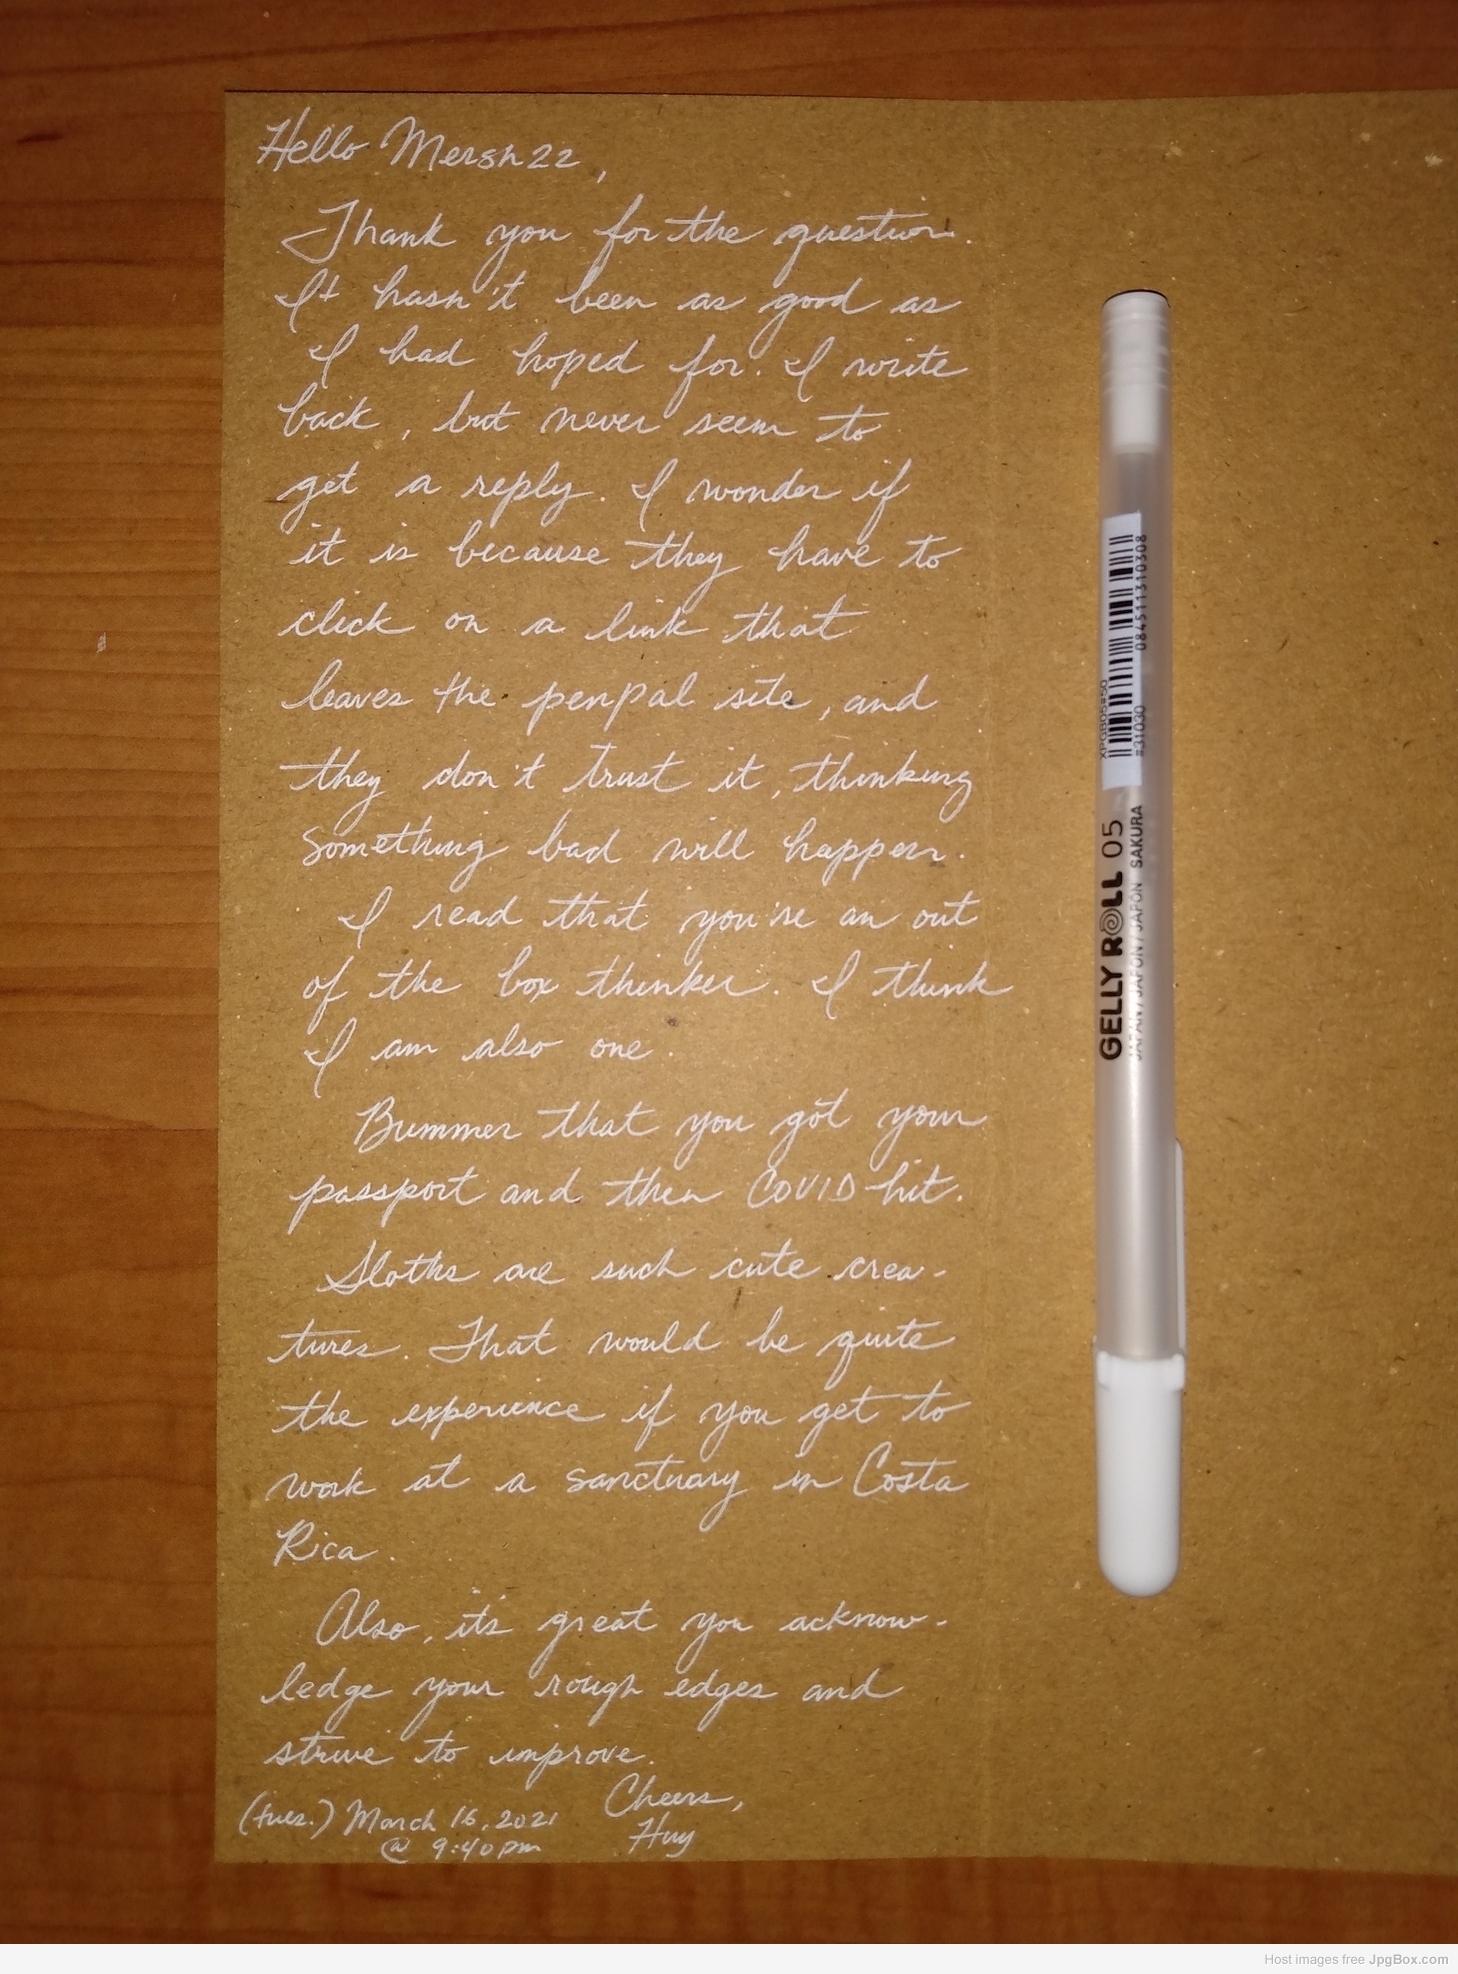 Hello Mersh22,
Thank you for the question.
It hasn't been as good as
I had hoped for. I write
back, but never seem to
get a reply. I wonder if
it is because they have to
click on a link that
leaves the penpal site, and
they don't trust it, thinking
something bad will happen.
I read that you're an out
of the box thinker. I think
I am also one.
Bummer that you got your
passport and then COVID hit.
Sloths are such cute crea-
tures. That would be quite
the experience if you get to
work at a sanctuary in Costa
Rica.
Also, it's great you acknow-
ledge your rough edges and
strive to improve.
Cheers,
Huy
(tues.) March 16, 2021
@ 9:40pm
XPGB05#50
084511310308
#31030
GELLY ROLL 05
JAPAN/JAPON/JAPON SAKURA
Host images free JpgBox.com